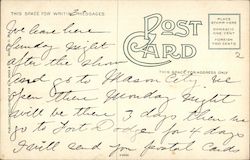 THIS SPACE FOR WRITING MESSAGES
POST CARD
PLACE STAMP HERE
DOMESTIC ONE CENT
FOREIGN TWO CENTS
THIS SPACE FOR ADDRESS ONLY
2
We leave here
Sunday night
after the show
and go to Mason City, Ia.
open there Monday night
will be there 3 days then we
go to Fort Dodge for 4 days
I will send you postal card